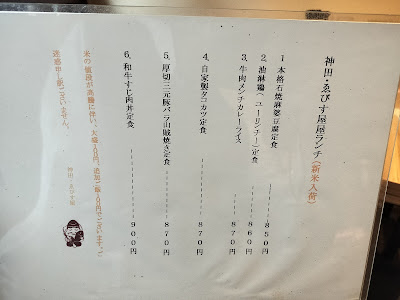 神田・ゑびす屋屋ランチ（新米入荷）
1 本格石焼麻婆豆腐定食 ８５０円
2、油淋鶏（ユーリンチー）定食 ８６０円
3、牛肉メンチカレーライス ８７０円
4、自家製タコカツ定食 ８７０円
5、厚切三元豚バラ山賊焼き定食 ８７０円
6、和牛すじ肉丼定食 ９００円
米の値段が高騰に伴い、大盛
ご迷惑申し訳ございません。
神田ゑびす屋